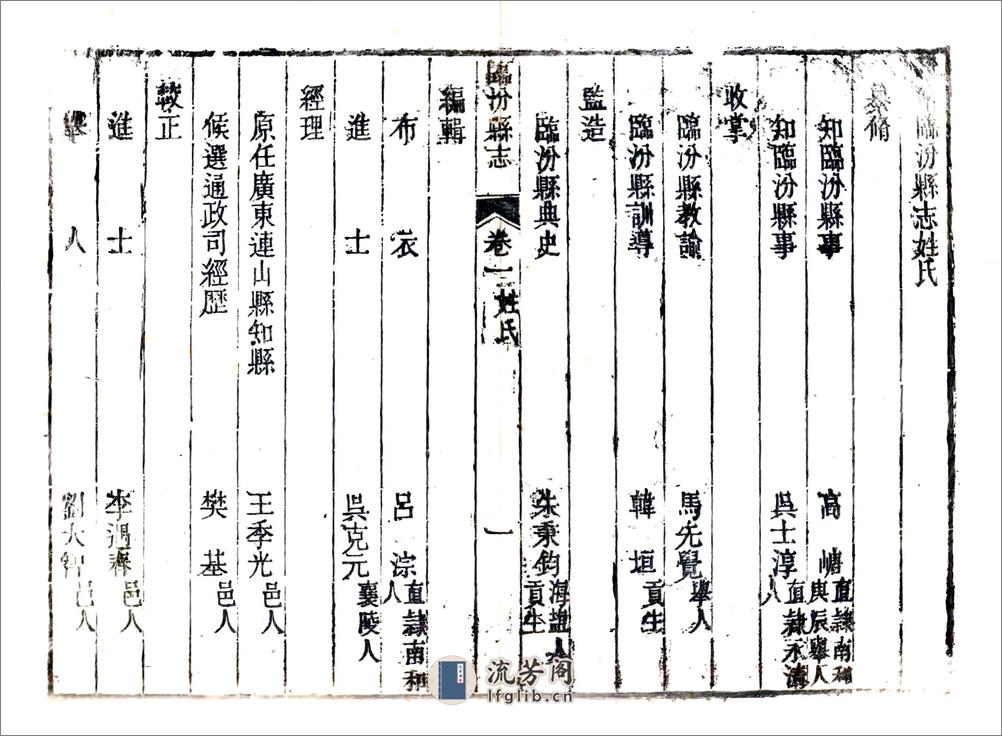 臨汾縣志姓氏
纂修
知臨汾縣事 高嵣 直隸南和人 庚辰舉人
知臨汾縣事 吳士淳 直隸永清人
收掌
臨汾縣教諭 馬先覺 舉人
臨汾縣訓導 韓垣 貢生
監造
臨汾縣典史 朱秉鈞 海鹽人 貢生
臨汾縣志 卷一 姓氏 一
布衣 呂淙 直隸南和人
編輯
進士 吳克元 襄陵人
經理
原任廣東連山縣知縣 王季光 邑人
候選通政司經歷 樊基 邑人
較正
進士 李過齊 邑人
舉人 劉大 邑人
流芳阁
lfglib.cn